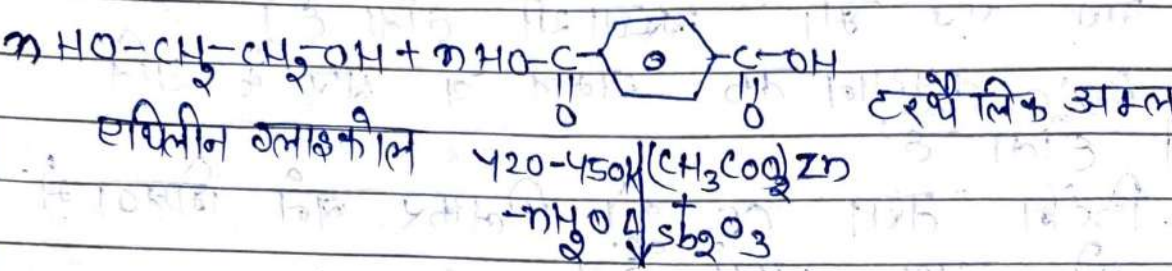 n HO-CH₂-CH₂-OH + n HO-C-⌬-C-OH
|| ||
O O टरथैलिक अम्ल
एथिलीन ग्लाइकोल 420-450K (CH₃COO)₂Zn
+
-nH₂O Δ Sb₂O₃